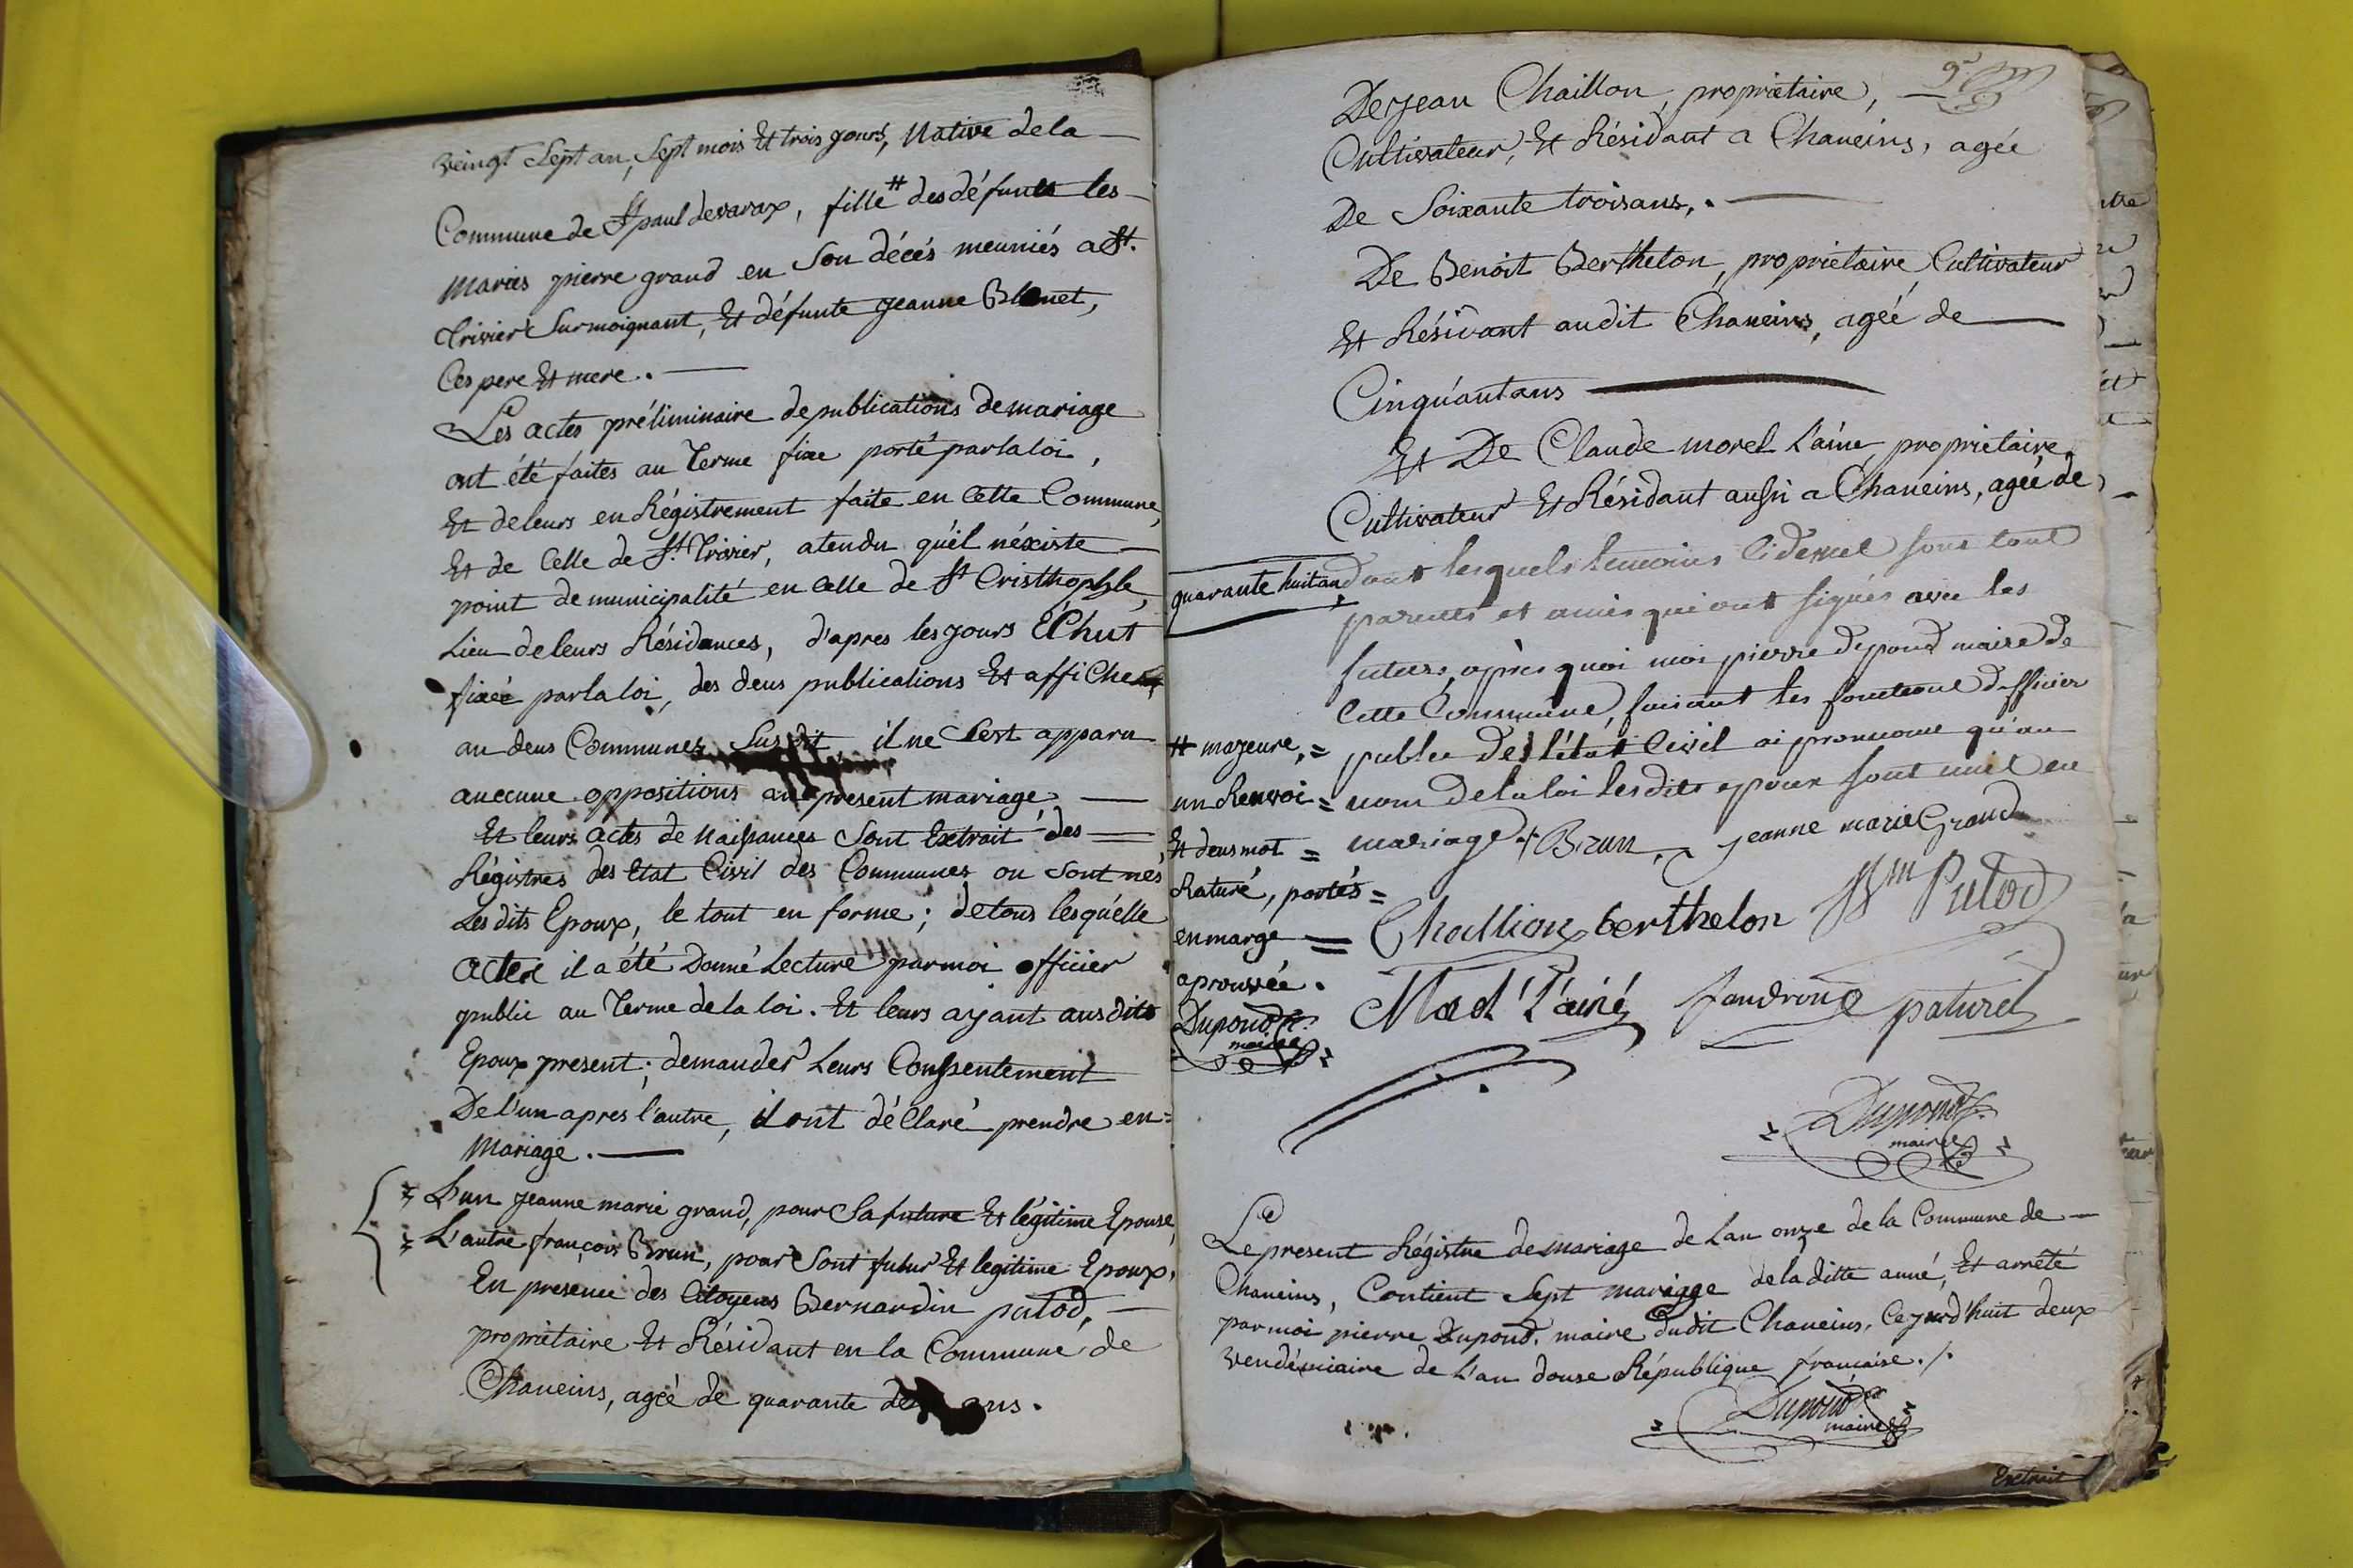 veingt Sept an, Sept mois Et trois jours, Native dela
Commune de St paul devarax, fille # des défunts les
mariés pierre grand en Son décés meuniés a St.
Trivier Surmoignant, Et défunte jeanne Blanet,
Ces pere Et mere.
Les actes préliminaire de publications de mariage
ont été faites au Terme fixe porté par la loi,
Et de leurs en Régistrement faite en Cette Commune,
Et de Celle de St. Trivier, atendu qu'el n'éxiste
point de municipalité en Celle de St Cristhophle,
Lieu de leurs Résidances, d'apres les jours ÉChut
fixée par la loi, des deus publications Et affiche
au deus Communes Sus dit, il ne Sest apparu
aucune oppositions au present mariage
Et leurs actes de Naissances Sont Extrait des
Régistres des Etat Civil des Communes ou Sont nés
Les dits Epoux, le tout en forme; de tous lesqu'elle
actes il a été Donné Lecture par moi officier
public au Terme de la loi. Et leurs ayant ausdits
Epoux present; demander Leurs Conssentement
De l'un apres l'autre, il ont déClaré prendre en=
Mariage.
L'un jeanne marie grand, pour Sa future Et légitime Epouse,
L'autre françois Brun, pour Sont futur Et legitime Epoux,
En presence des Citoyens Bernardin putod,
propriétaire Et Résidant en la Commune de
Chaneins, agéé de quarante ans.
9e
De jean Chaillon, propriétaire,
Cultivateur, Et Résidant a Chaneins, agée
De Soixante trois ans,.
De Benoit Berthelon, propriétaire, Cultivateur
Et Résidant audit Chaneins, agéé de
Cinqu'antans
Et De Claude morel L'aine, propriétaire,
Cultivateur Et Résidant aussi a Chaneins, agéé de
quarante huitans
dont lesquels temoins Cidessus sons tout
parents et amis qui ont signés avec les
futurs, après quoi moi pierre dupond maire de
Cette Commune, faisant les fonctions d'officier
public de l'état Civil ai prononcé qu'au
nom de la loi lesdits epoux sont unis en
mariage
# majeure, =
un Renvoi =
Et deus mot =
Raturé, portés =
en marge =
aprouvée.
Dupond
maire
f Brun
jeanne marie Grand
Putod
Challion berthelon
L'ainé
paturel
Dupond
maire
Le present Régistre de mariage de Lan onze de la Commune de
Chaneins, Contient Sept mariage de la ditte anné, Et arrêté
par moi pierre Dupond. maire dudit Chaneins, Cejourd'huit deux
vendémiaire de L'an douse République francaise./.
Dupond
maire
Extrait